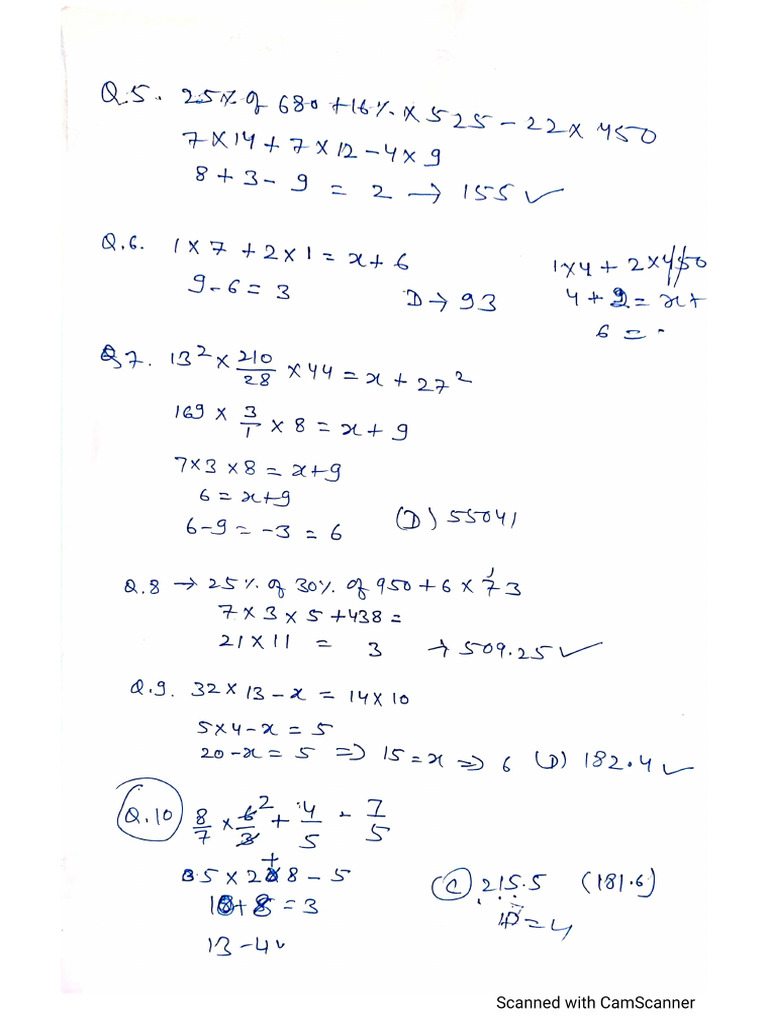 Q.5. 25% of 680 + 16% × 525 - 22 × 450
7 × 14 + 7 × 12 - 4 × 9
8 + 3 - 9 = 2 → 155 ✓
Q.6. 1 × 7 + 2 × 1 = x + 6
9 - 6 = 3 D → 93
1 × 4 + 2 × 450
4 + 9 = x +
6 =
Q7. 13² × 210/28 × 44 = x + 27²
169 × 3/1 × 8 = x + 9
7 × 3 × 8 = x + 9
6 = x + 9
6 - 9 = -3 = 6 (D) 55041
Q.8 → 25% of 30% of 950 + 6 × 73
7 × 3 × 5 + 438 =
21 × 11 = 3 → 509.25 ✓
Q.9. 32 × 13 - x = 14 × 10
5 × 4 - x = 5
20 - x = 5 => 15 = x => 6 (D) 182.4 ✓
Q.10 8/7 × 6/3 ² + 4/5 - 7/5
35 × 2 + 8 - 5
(C) 215.5 (181.6)
10 + 8 = 3
10 = 4
13 - 4
Scanned with CamScanner